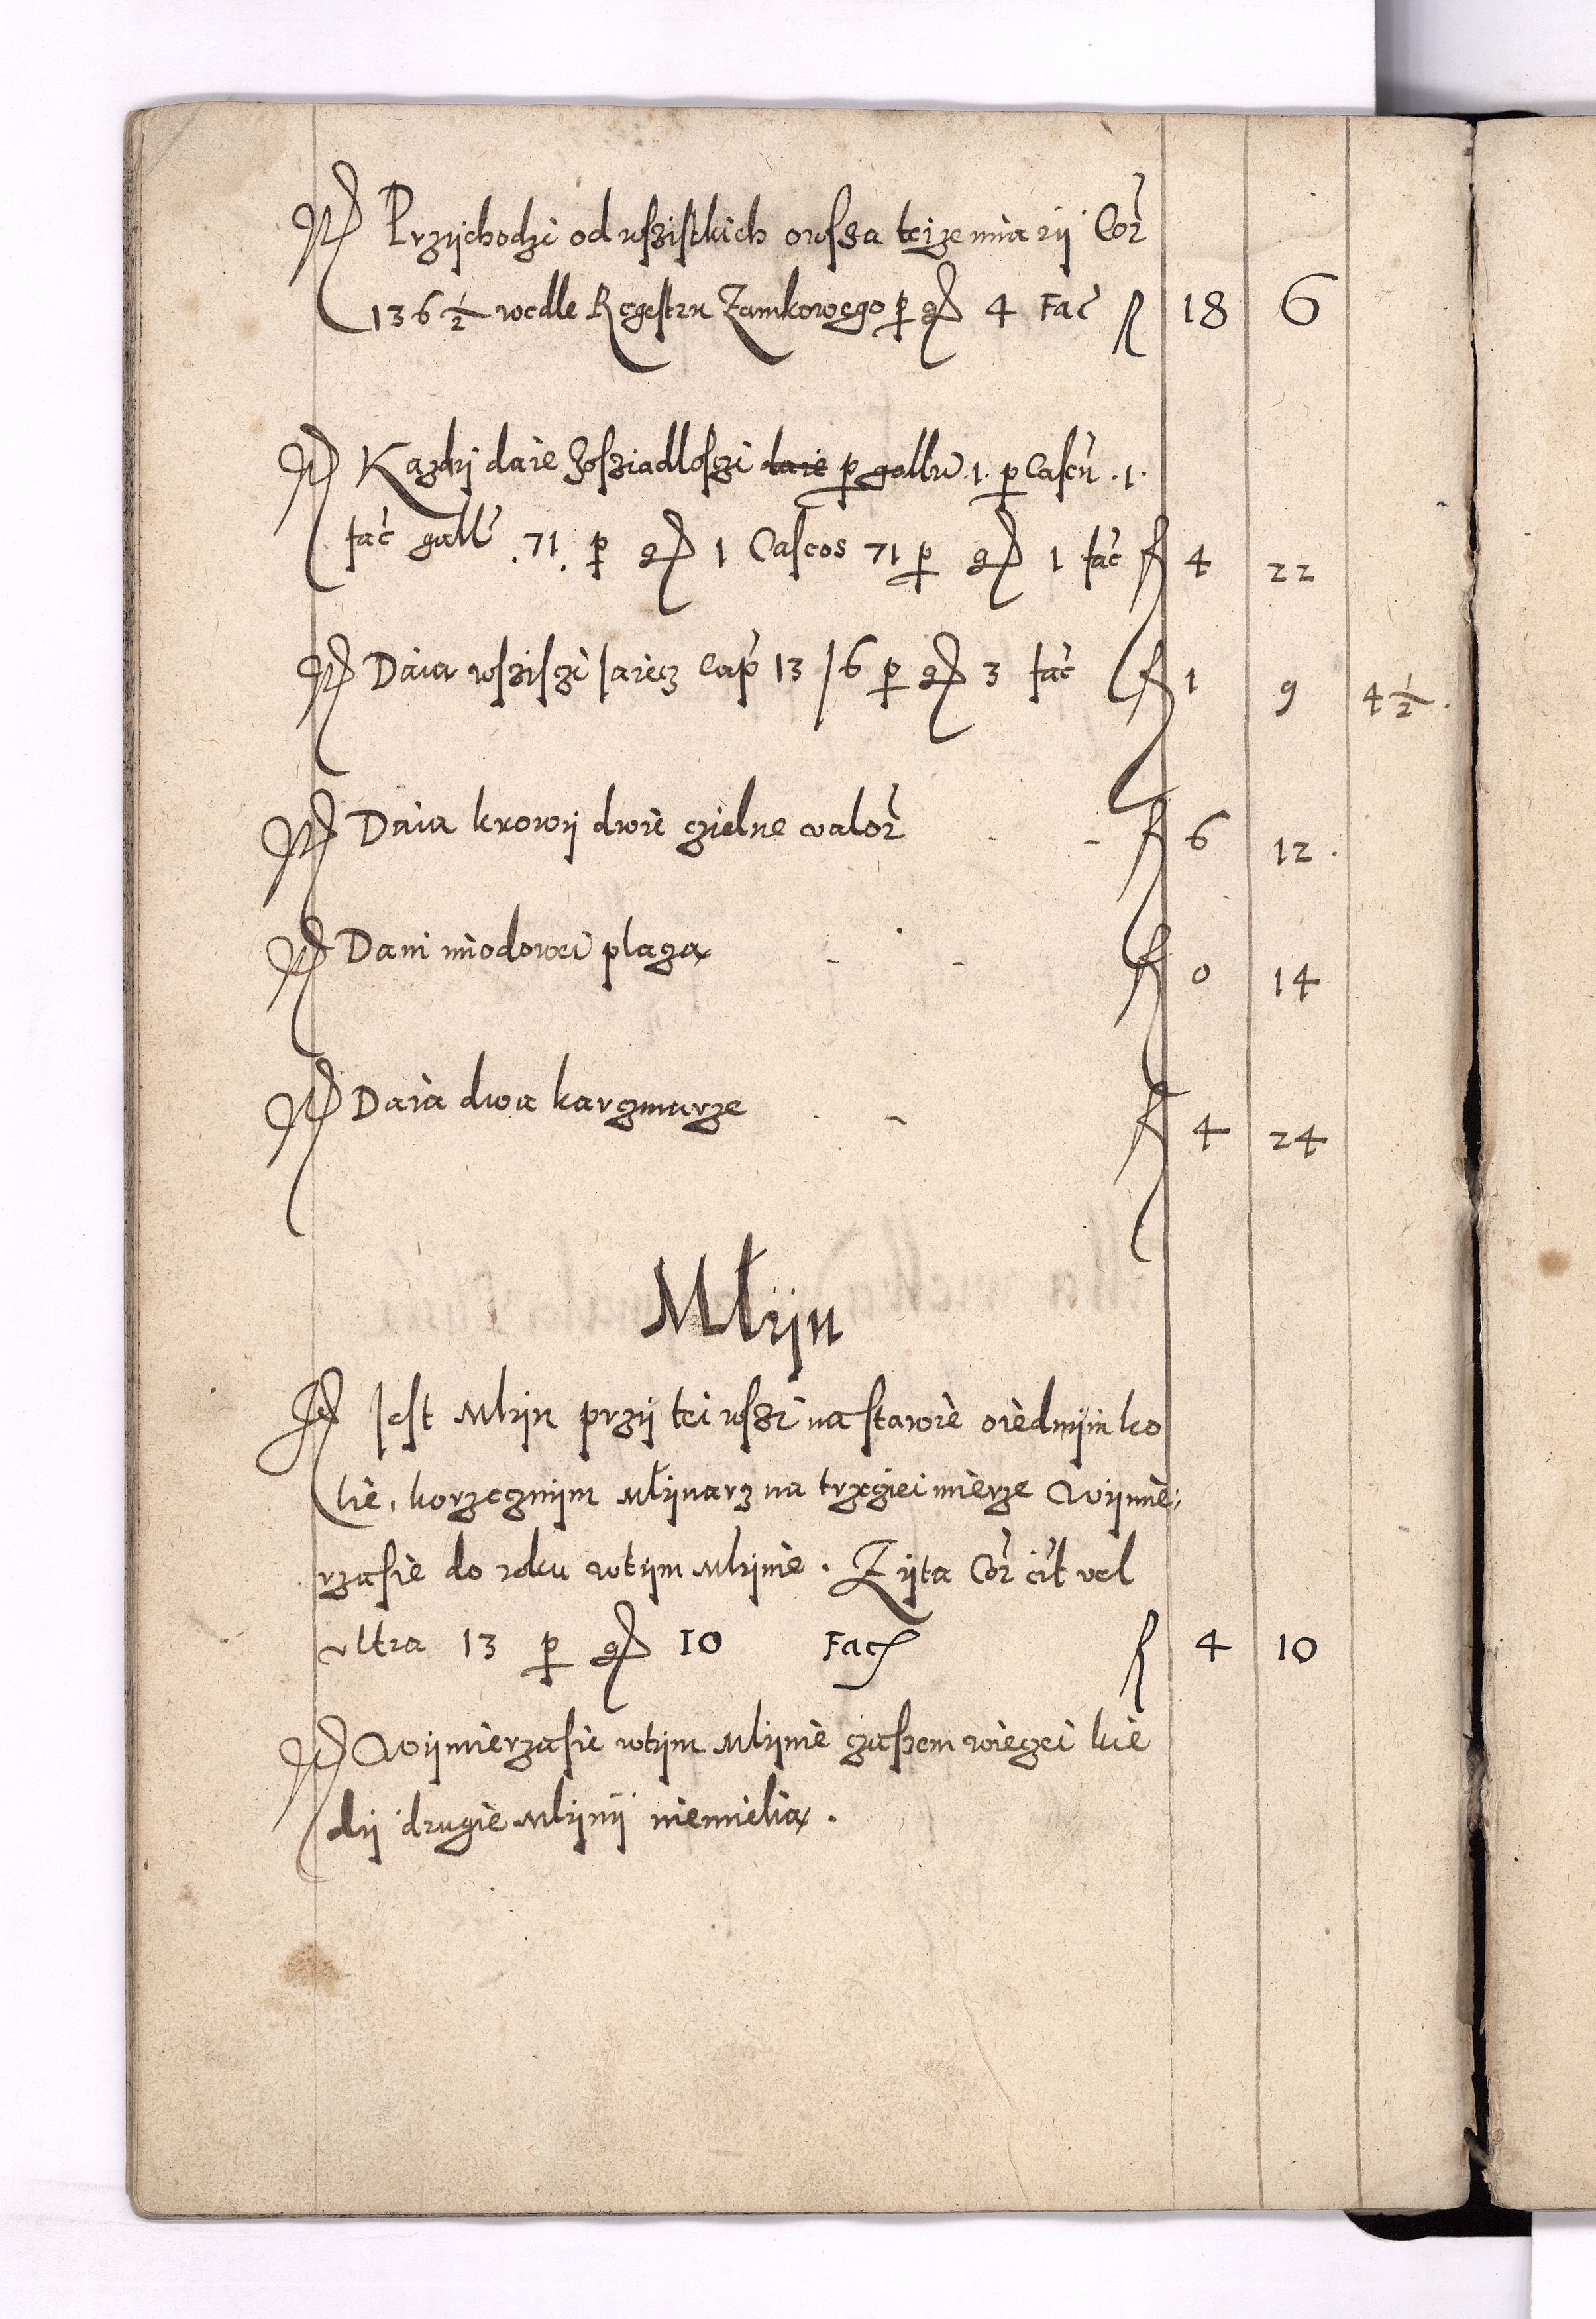 It Przÿchodzi od wsziſtkich owſsa teize miarÿ Cor̃
136 ½ wedle Regeſtru Zamkowego ꝑ gr 4 Fac̃ fl 18 6
It Kazdÿ daie Zosziadloſczi daie ꝑ gallũ .1. ꝑ Caseũ .1.
fac̃ gall̃ .71. ꝑ gr 1 Caseos 71 ꝑ gr 1 fac̃ fl 4 22
It Daia wsziſzi Iaiecz Cap̃ 13 / 6 ꝑ gr 3 fac̃ fl 1 9 4 ½ .
It Daia krowÿ dwie czielne valor̃ fl 6 12 .
It Dani miodowei placzą fl 0 14
It Daia dwa karczmarze fl 4 24
Młÿn
It Ieſt Mlÿn przÿ tei wſzi na ſtawie oiednÿm ko
lie, korzecznÿm Młÿnarz na trzeciei mierze Wÿmie,
rzaſie do roku wtÿm Mlÿnie . Zÿta Cor̃ cit̃ vel
vltra 13 ꝑ gr 10 Fac fl 4 10
It Wÿmierzaſie wtÿm Mlÿnie czaſzem wieczei kie
dÿ drugie Mlÿnÿ niemielią .